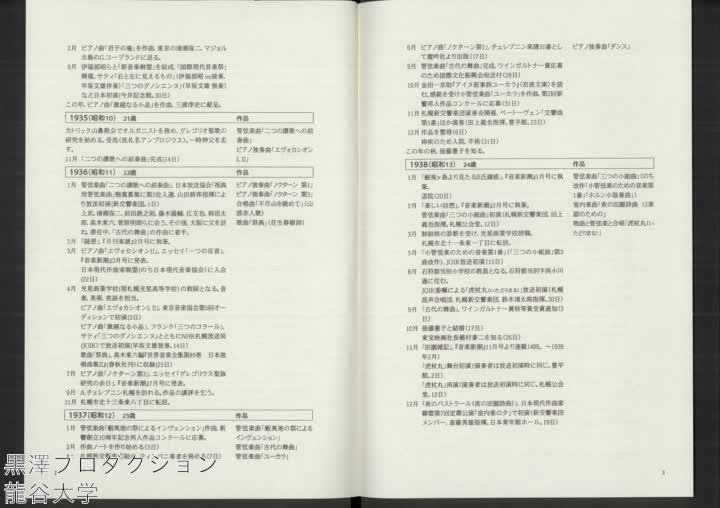 2月 ピアノ曲「君子の庵」を作曲。東京の清瀬保二、マジョル
カ島のG.コープランドに送る。
9月 伊福部昭らと「新音楽聯盟」を結成、「国際現代音楽祭」
開催。サティ「右と左に見えるもの」(伊福部昭 vn独奏、
早坂文雄伴奏)「三つのグノシエンヌ」(早坂文雄 独奏)
など日本初演(今井記念館、30日)
この年、ピアノ曲「激越なる小品」を作曲、三浦淳史に献呈。
1935(昭和10) 21歳 作品
カトリック山鼻教会でオルガニストを務め、グレゴリオ聖歌の
研究を始める。受洗(洗礼名アンブロジウス)。一時神父を志
す。
11月 「二つの讃歌への前奏曲」完成(14日)
管弦楽曲「二つの讃歌への前
奏曲」
ピアノ独奏曲「エヴォカシオン
I、II」
1936(昭和11) 22歳 作品
1月 管弦楽曲「二つの讃歌への前奏曲」、日本放送協会「祝典
用管弦楽曲」懸賞募集に第2位入選。山田耕筰指揮によ
り放送初演(新交響楽団、1日)
上京。清瀬保二、萩田銕之助、藤木義輔、江文也、柿田太
郎、高木東六、菅原明朗らに会う。その後、大阪に父を訪
ね、滞在中、「古代の舞曲」の作曲に着手。
2月 「随想」、『月刊楽譜』2月号に執筆。
3月 ピアノ曲「エヴォカシオンII」、エッセイ「一つの反省」、
『音楽新潮』3月号に発表。
日本現代作曲家聯盟(のち日本現代音楽協会)に入会
(22日)
4月 光星商業学校(現札幌光星高等学校)の教師となる。音
楽、美術、英語を担当。
ピアノ曲「エヴォカシオンI、II」、東京音楽協会第5回オー
ディションで初演(3日)
ピアノ曲「激越なる小品」、フランク「三つのコラール」、
サティ「三つのグノシエンヌ」とともにNHK札幌放送局
(JOIK)で放送初演(早坂文雄独奏、14日)
歌曲「祭典」、高木東六編『世界音楽全集第89巻 日本独
唱曲集II』(春秋社刊)に収録(25日)
7月 ピアノ曲「ノクターン第3」、エッセイ「グレゴリウス聖詠
研究の余日」、『音楽新潮』7月号に発表。
9月 A.チェレプニン札幌を訪れる。作品の講評を乞う。
11月 札幌市北十三条東六丁目に転居。
ピアノ独奏曲「ノクターン 第1」
ピアノ独奏曲「ノクターン 第3」
合唱曲「不尽山を眺めて」(山
部赤人歌)
歌曲「祭典」(荘生春樹詩)
1937(昭和12) 23歳 作品
1月 管弦楽曲「蝦夷地の祭によるインヴェンション」作曲、新
響創立10周年記念邦人作品コンクールに応募。
3月 作曲ノートを作り始める(3日)
管弦楽曲「蝦夷地の祭による
インヴェンション」
管弦楽曲「古代の舞曲」
管弦楽曲「ユーカラ」
6月 ピアノ曲「ノクターン第1」、チェレプニン楽譜31番とし
て龍吟社より出版(17日)
8月 管弦楽曲「古代の舞曲」完成。ワインガルトナー賞応募
のため国際文化振興会宛送付(28日)
10月 金田一京助『アイヌ叙事詩ユーカラ』(岩波文庫)を読
む。感銘を受け小管弦楽曲「ユーカラ」を作曲、第2回新
響邦人作品コンクールに応募(31日)
11月 札幌新交響楽団演奏会開催。ベートーヴェン「交響曲
第5番」ほか演奏(田上義也指揮、豊平館、23日)
12月 作品を整理(6日)
痔疾のため入院、手術(31日)
この年の秋、後藤憲子を知る。
ピアノ独奏曲「ダンス」
1938(昭和13) 24歳 作品
退院(20日)
2月 「楽しい回想」、『音楽新潮』2月号に執筆。
管弦楽曲「三つの小組曲」初演(札幌新交響楽団、田上
義也指揮、札幌公会堂、12日)
3月 肺結核の診断を受け、光星商業学校辞職。
札幌市北十一条東一丁目に転居。
5月 「小管弦楽のための音楽第1番」(「三つの小組曲」第3
曲改作)、JOIK放送初演(15日)
8月 石狩郡当別小学校の教員となる。石狩郡当別字西小川
通に住む。
JOIK委嘱による「虎杖丸(いたどりまる)」放送初演(札幌
混声合唱団、札幌新交響楽団、鈴木清太郎指揮、30日)
9月 管弦楽曲「古代の舞曲」、ワインガルトナー賞特等賞受賞通知(3
日)
10月 後藤憲子と結婚(17日)
東宝映画社長植村泰二を知る(26日)
11月 「田園雑記」、『音楽新潮』11月号より連載(4回、〜1939
年2月)
「虎杖丸」舞台初演(演奏者は放送初演時に同じ、豊平
館、2日)
「虎杖丸」再演(演奏者は放送初演時に同じ、札幌公会
堂、12日)
12月 「夜のパストラール(夜の田園詩曲)」、日本現代作曲家
聯盟第7回定期公演「室内楽の夕」で初演(新交響楽団
メンバー、斎藤秀雄指揮、日本青年館ホール、19日)
管弦楽曲「三つの小組曲」(のち
改作「小管弦楽のための音楽第
1番」「ホルン小協奏曲」)
室内楽曲「夜の田園詩曲」(12楽
器のための)
物語と管弦楽と合唱「虎杖丸(い
たどりまる)」
3
黒澤プロダクション
龍谷大学